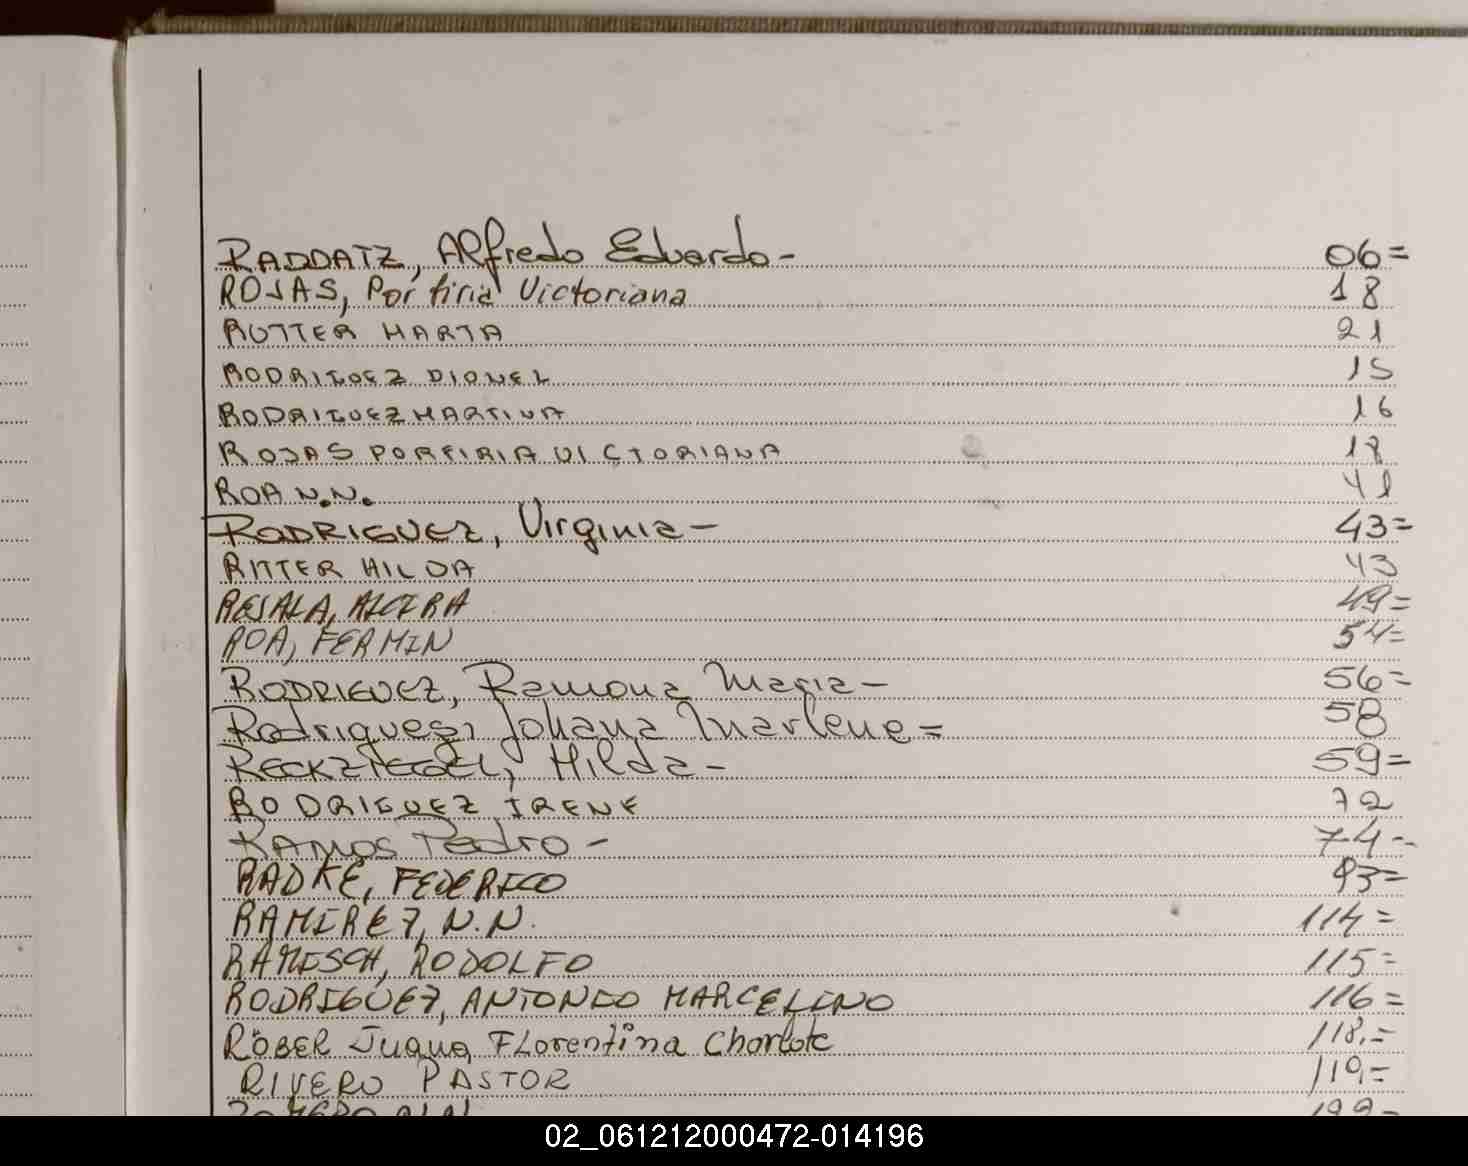 RADDATZ, Alfredo Eduardo- 06=
ROJAS, Porfiria Victoriana 18
RUTTER MARTA 21
RODRIGUEZ DIONEL 15
RODRIGUEZ MARTINA 16
ROJAS PORFIRIA VICTORIANA 18
ROA N.N. 41
RODRIGUEZ, Virginia- 43=
RITTER HILDA 43
ALCIRA 49=
ROA, FERMIN 54=
RODRIGUEZ, Ramona Maria- 56=
Rodrigues, Johana Marlene= 58
RECKZIEGEL, Hilda- 59=
RODRIGUEZ IRENE 72
RAMOS Pedro- 74-
RADKE, FEDERICO 93=
RAMIREZ, N.N. 114=
RAMISCH, RODOLFO 115=
RODRIGUEZ, ANTONIO MARCELINO 116=
RÖBER Juana Florentina Charlote 118.=
RIVERO PASTOR 119=
ROMERO N.N.
02_061212000472-014196